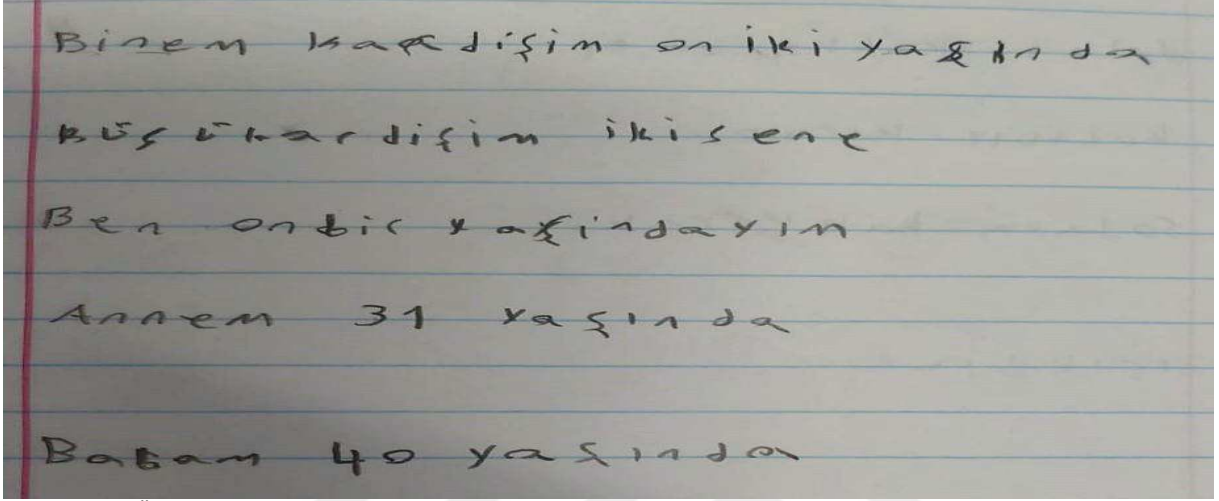 Binem kardişim on iki yaşında
Büşükardişim ikisene
Ben onbir yaşindayım
Annem 31 yaşında
Babam 40 yaşında